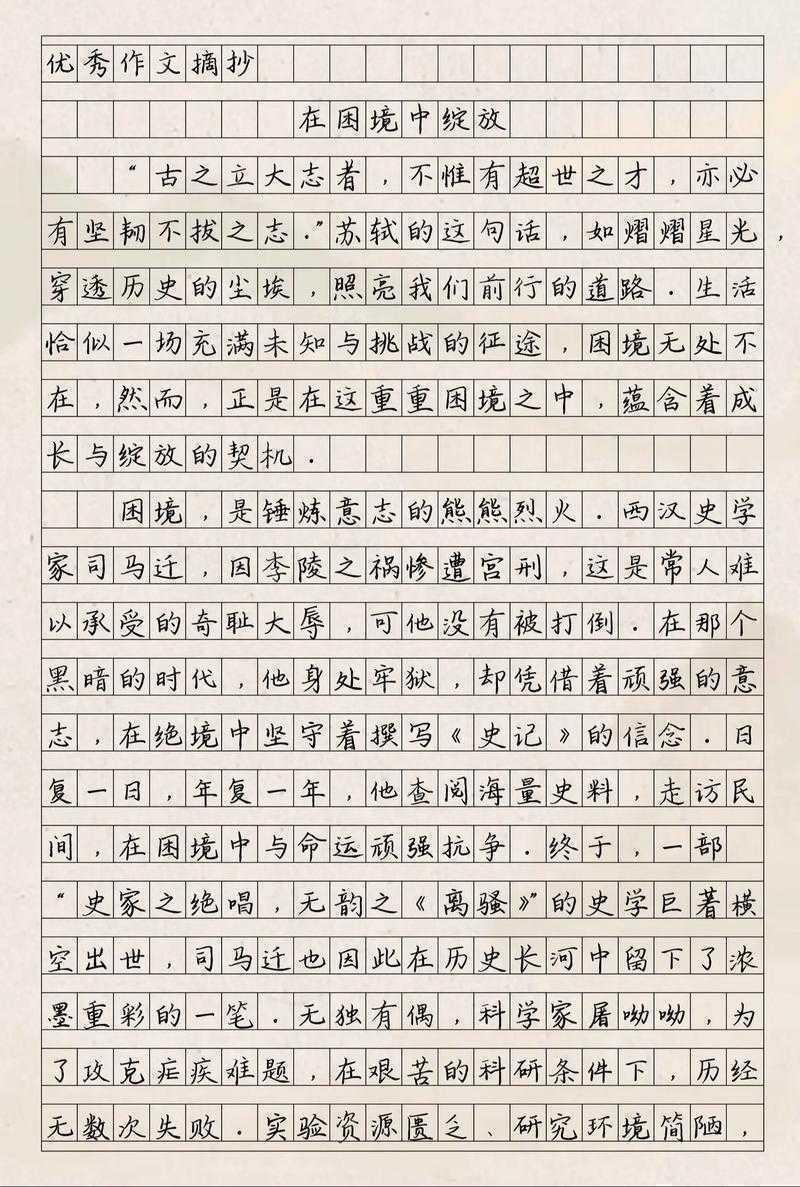 优秀作文摘抄
在困境中绽放
“古之立大志者，不惟有超世之才，亦必
有坚韧不拔之志．”苏轼的这句话，如熠熠星光，
穿透历史的尘埃，照亮我们前行的道路．生活
恰似一场充满未知与挑战的征途，困境无处不
在，然而，正是在这重重困境之中，蕴含着成
长与绽放的契机．
困境，是锤炼意志的熊熊烈火．西汉史学
家司马迁，因李陵之祸惨遭宫刑，这是常人难
以承受的奇耻大辱，可他没有被打倒．在那个
黑暗的时代，他身处牢狱，却凭借着顽强的意
志，在绝境中坚守着撰写《史记》的信念．日
复一日，年复一年，他查阅海量史料，走访民
间，在困境中与命运顽强抗争．终于，一部
“史家之绝唱，无韵之《离骚》”的史学巨著横
空出世，司马迁也因此在历史长河中留下了浓
墨重彩的一笔．无独有偶，科学家屠呦呦，为
了攻克疟疾难题，在艰苦的科研条件下，历经
无数次失败．实验资源匮乏、研究环境简陋，